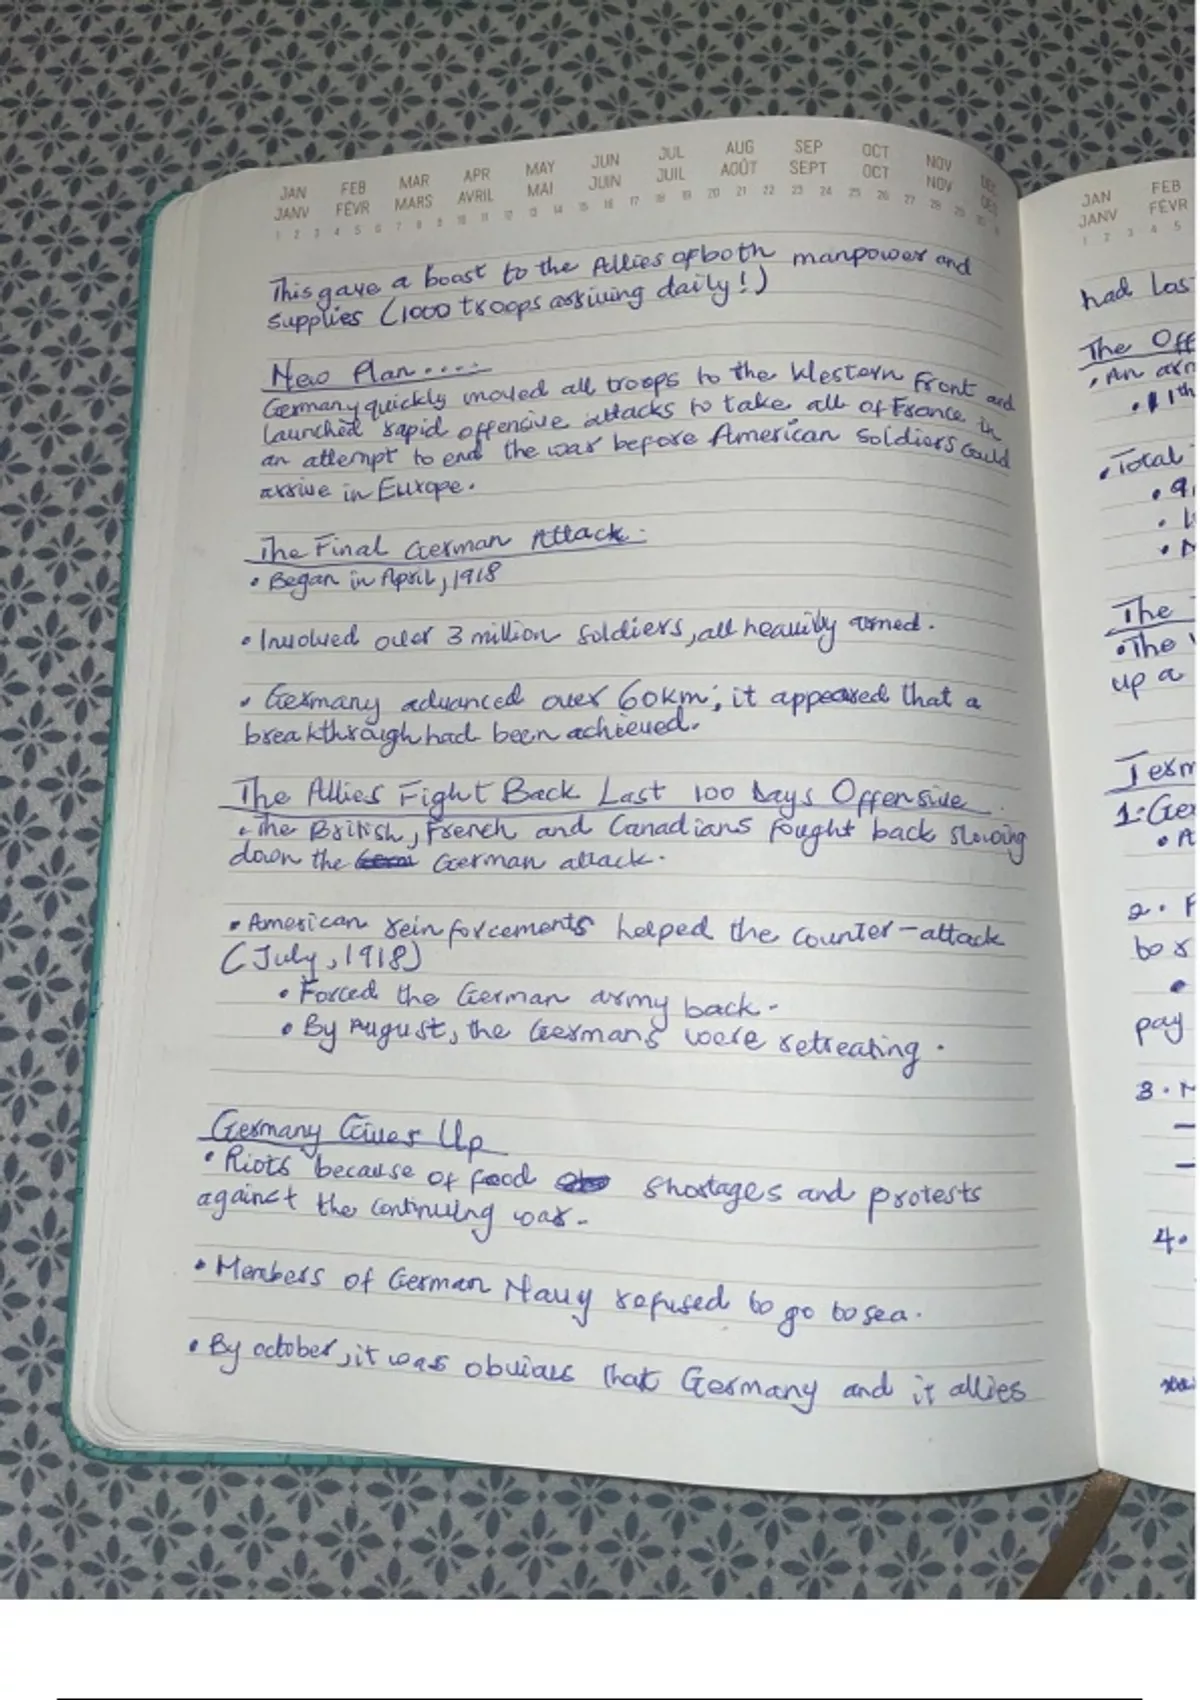 JAN FEB MAR APR MAY JUN JUL AUG SEP OCT NOV DEC
JANV FÉVR MARS AVRIL MAI JUIN JUIL AOÛT SEPT OCT NOV DEC
1 2 3 4 5 6 7 8 9 10 11 12 13 14 15 16 17 18 19 20 21 22 23 24 25 26 27 28 29 30
This gave a boast to the Allies of both manpower and
supplies (1000 troops arriving daily!)
New Plan....:
Germany quickly moved all troops to the Western Front and
launched rapid offensive attacks to take all of France in
an attempt to end the war before American soldiers could
arrive in Europe.
The Final German Attack:
• Began in April, 1918
• Involved over 3 million soldiers, all heavily armed.
• Germany advanced over 60km; it appeared that a
breakthrough had been achieved.
The Allies Fight Back Last 100 Days Offensive
• The British, French and Canadians fought back slowing
down the German attack.
• American reinforcements helped the counter-attack
(July, 1918)
• Forced the German army back.
• By August, the Germans were retreating.
Germany Gives Up
• Riots because of food shortages and protests
against the continuing war.
• Members of German Navy refused to go to sea.
• By october, it was obvious that Germany and it allies
JAN FEB
JANV FÉVR
1 2 3 4 5
had las
The Off
• An arm
• 11th
• Total
The
• The
up a
Term
1:Ge
2.
to
pay
3.
4.